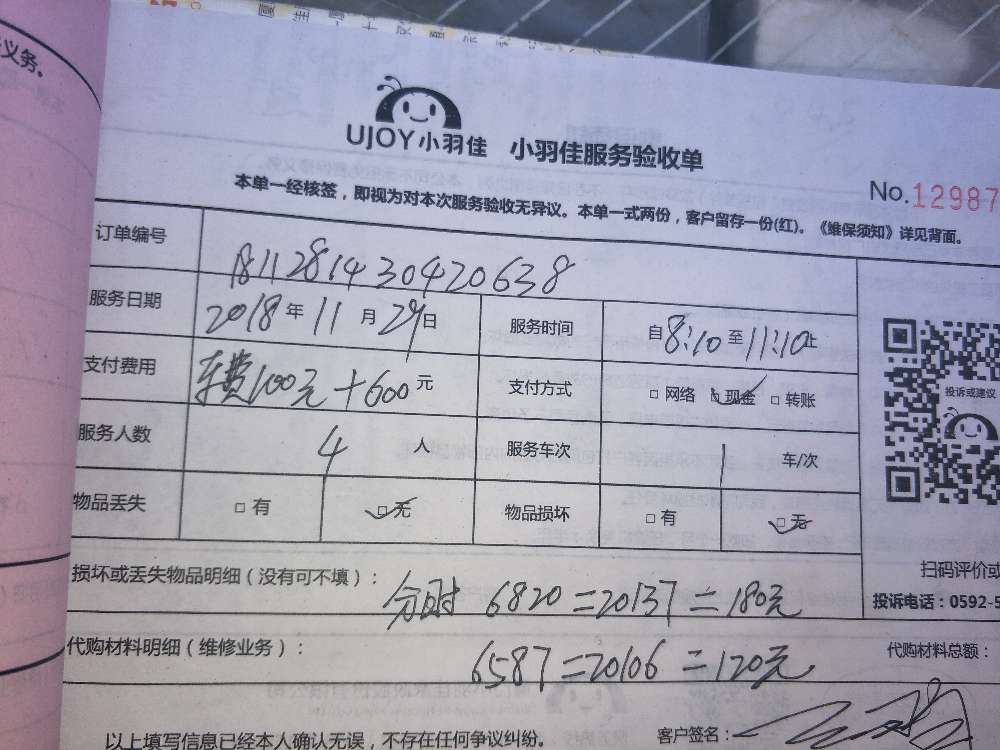 义务。
UJOY小羽佳 小羽佳服务验收单
No.12987
本单一经核签，即视为对本次服务验收无异议。本单一式两份，客户留存一份(红)。《维保须知》详见背面。
订单编号 1811281430420638
服务日期 2018年11月29日 服务时间 自8:10至11:10止
支付费用 车费100元+600元 支付方式 □网络 □现金 □转账
投诉或建议
服务人数 4人 服务车次 1 车/次
物品丢失 □有 □无 物品损坏 □有 □无
扫码评价或
损坏或丢失物品明细（没有可不填）：
投诉电话：0592-5
分时 6820=20137=180元
代购材料明细（维修业务）： 代购材料总额：
6587=20106=120元
以上填写信息已经本人确认无误，不存在任何争议纠纷。 客户签名：